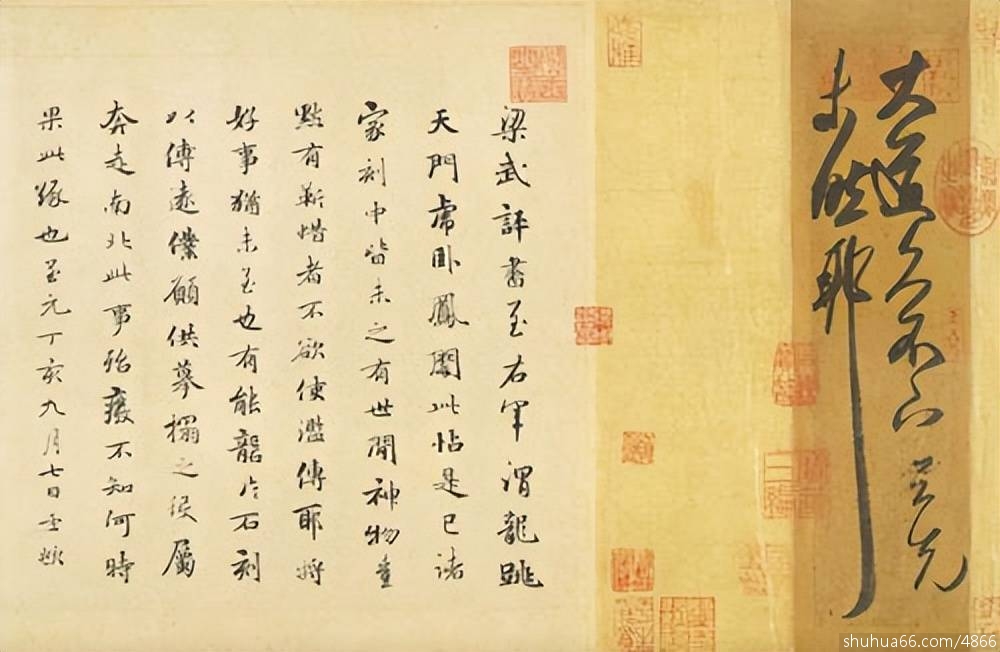 大道久不下與先
未然耶
梁武評書至右軍謂龍跳
天門虎臥鳳閣此帖是已諸
家刻中皆未之有世間神物豈
默有靳惜者不欲使濫傳耶將
好事猶未至也有能礱片石刻
以傳遠僕願供摹搨之役屬
奔走南北此事殆廢不知何時
果此緣也至元丁亥九月七日
shuhua66.com/4866